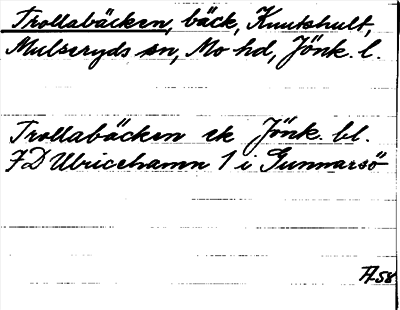 Trollabäcken, bäck, Knutshult,
Mulseryds sn, Mo hd, Jönk. l.
Trollabäcken ek Jönk. bl.
FD Ulricehamn 1 i Gunnarsö